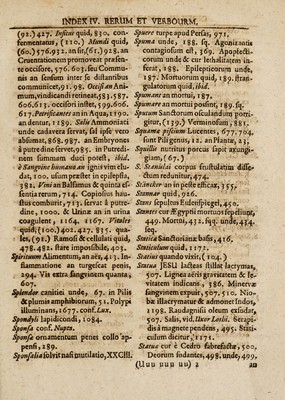 INDEX IV. RERUM ET VERBOURM.
(92.) 427. Desicui quid, 830. con-
fermentatus, (110.) Mundi quid,
(60.), 576, 932. an sit, (61.) 928. an
Cruentationem promoveat præsen-
te occisore, 576, 603. seu Commu-
nis an sensum inter se distantibus
communicet, 931. 98. Occisi an Ani-
mum, vindicandi retineat, 583. 587.
606. 613. occisori instet, 599. 606.
617. Petrificantes an in Aqua, 1190.
an dentur, 1189. Salis Ammoniaci
unde cadavera servat, sal ipse vero
absumat, 868. 987. an Embryones
à putredine servet, 985. in Putredi-
nem summam duci potest, ibid.
è Sanguine humano an ignis vim elu-
dat, 100. usum præstet in epilepsia,
381. Vini an Balsamus & quinta es-
sentia rerum, 714. Copiosius hau-
stus comburit, 713. servat à putre-
dine, 1000. & Urinæ an in urina
coagulent, 1164. 1167. Vitales
quid, (100.) 402. 427. 835. qua-
les, (91.) Ramosi & cellulati quid,
478. 482. stare impossibile, 403.
Spirituum Alimentum, an aës, 413. In-
flammatione an turgescat penis,
194. Vis extra sanguinem quanta,
607.
Splendor canities unde, 67. in Pilis
& plumis amphibiorum, 51. Polypi
illuminans, 1677. conf. Lux.
Spondyli lapidicondi, 1084.
Sponsa conf. Nupta.
Sponsa ornamentum penes collo ap-
pensi, 189.
Sponsalia solvit nasi mutilatio, XXCIII.
Spuere turpe apud Persas, 971.
Spuma unde, 188. sq. Agonizantis
contagiosum est, 369. Apoplecti-
corum unde & cur lethalitatem in-
ferat, 188. Epilepticorum unde,
187. Mortuorum quid, 189. stran-
gulatorum quid, ibid.
Spumare an mortui, 187.
Spumare an mortui possint, 189. sq.
Sputum Sanctorum osculandum porri-
gitur, (139.) Verminosum, 881.
Squama piscium Lucentes, 677, 704.
sint Pili genus, 12. an Plantæ, 23.
Squilla nutritus porcus sapit axungi-
giam, (67.)
à Stabili corpus frustulatim disse-
ctum redunitur, 474.
Staniker an in peste efficax, 355.
Stannar quid, 926.
Stans sepultus Euleri spiegel, 450.
Stantes cur Ægyptii mortuos sepeliunt,
449. Mortoi, 432. sqq. unde, 434.
seq.
Statio Sanctoriana bosis, 416.
Statiosculum quid, 1172.
Statius quando vixit, (104.)
Statua JESU lacteas stillat lacrymas,
507. Lignea aëris gravitatem & le-
vitatem indicans, 586. Minervæ
sanguinem expuit, 507. 510. Nio-
bis illacrymatur & admonet Indos,
1198. Raudagnisii oleum exsudat,
507. Salis, vid. Uxor Lothi. Serapi-
dis à magnete pendens, 495. Stati-
culum dicitur, 1171.
Statua cur è Cedro fabrefactæ, 500.
Deorum sudantes, 498. unde, 499.
(Uuu uuu uu) 2